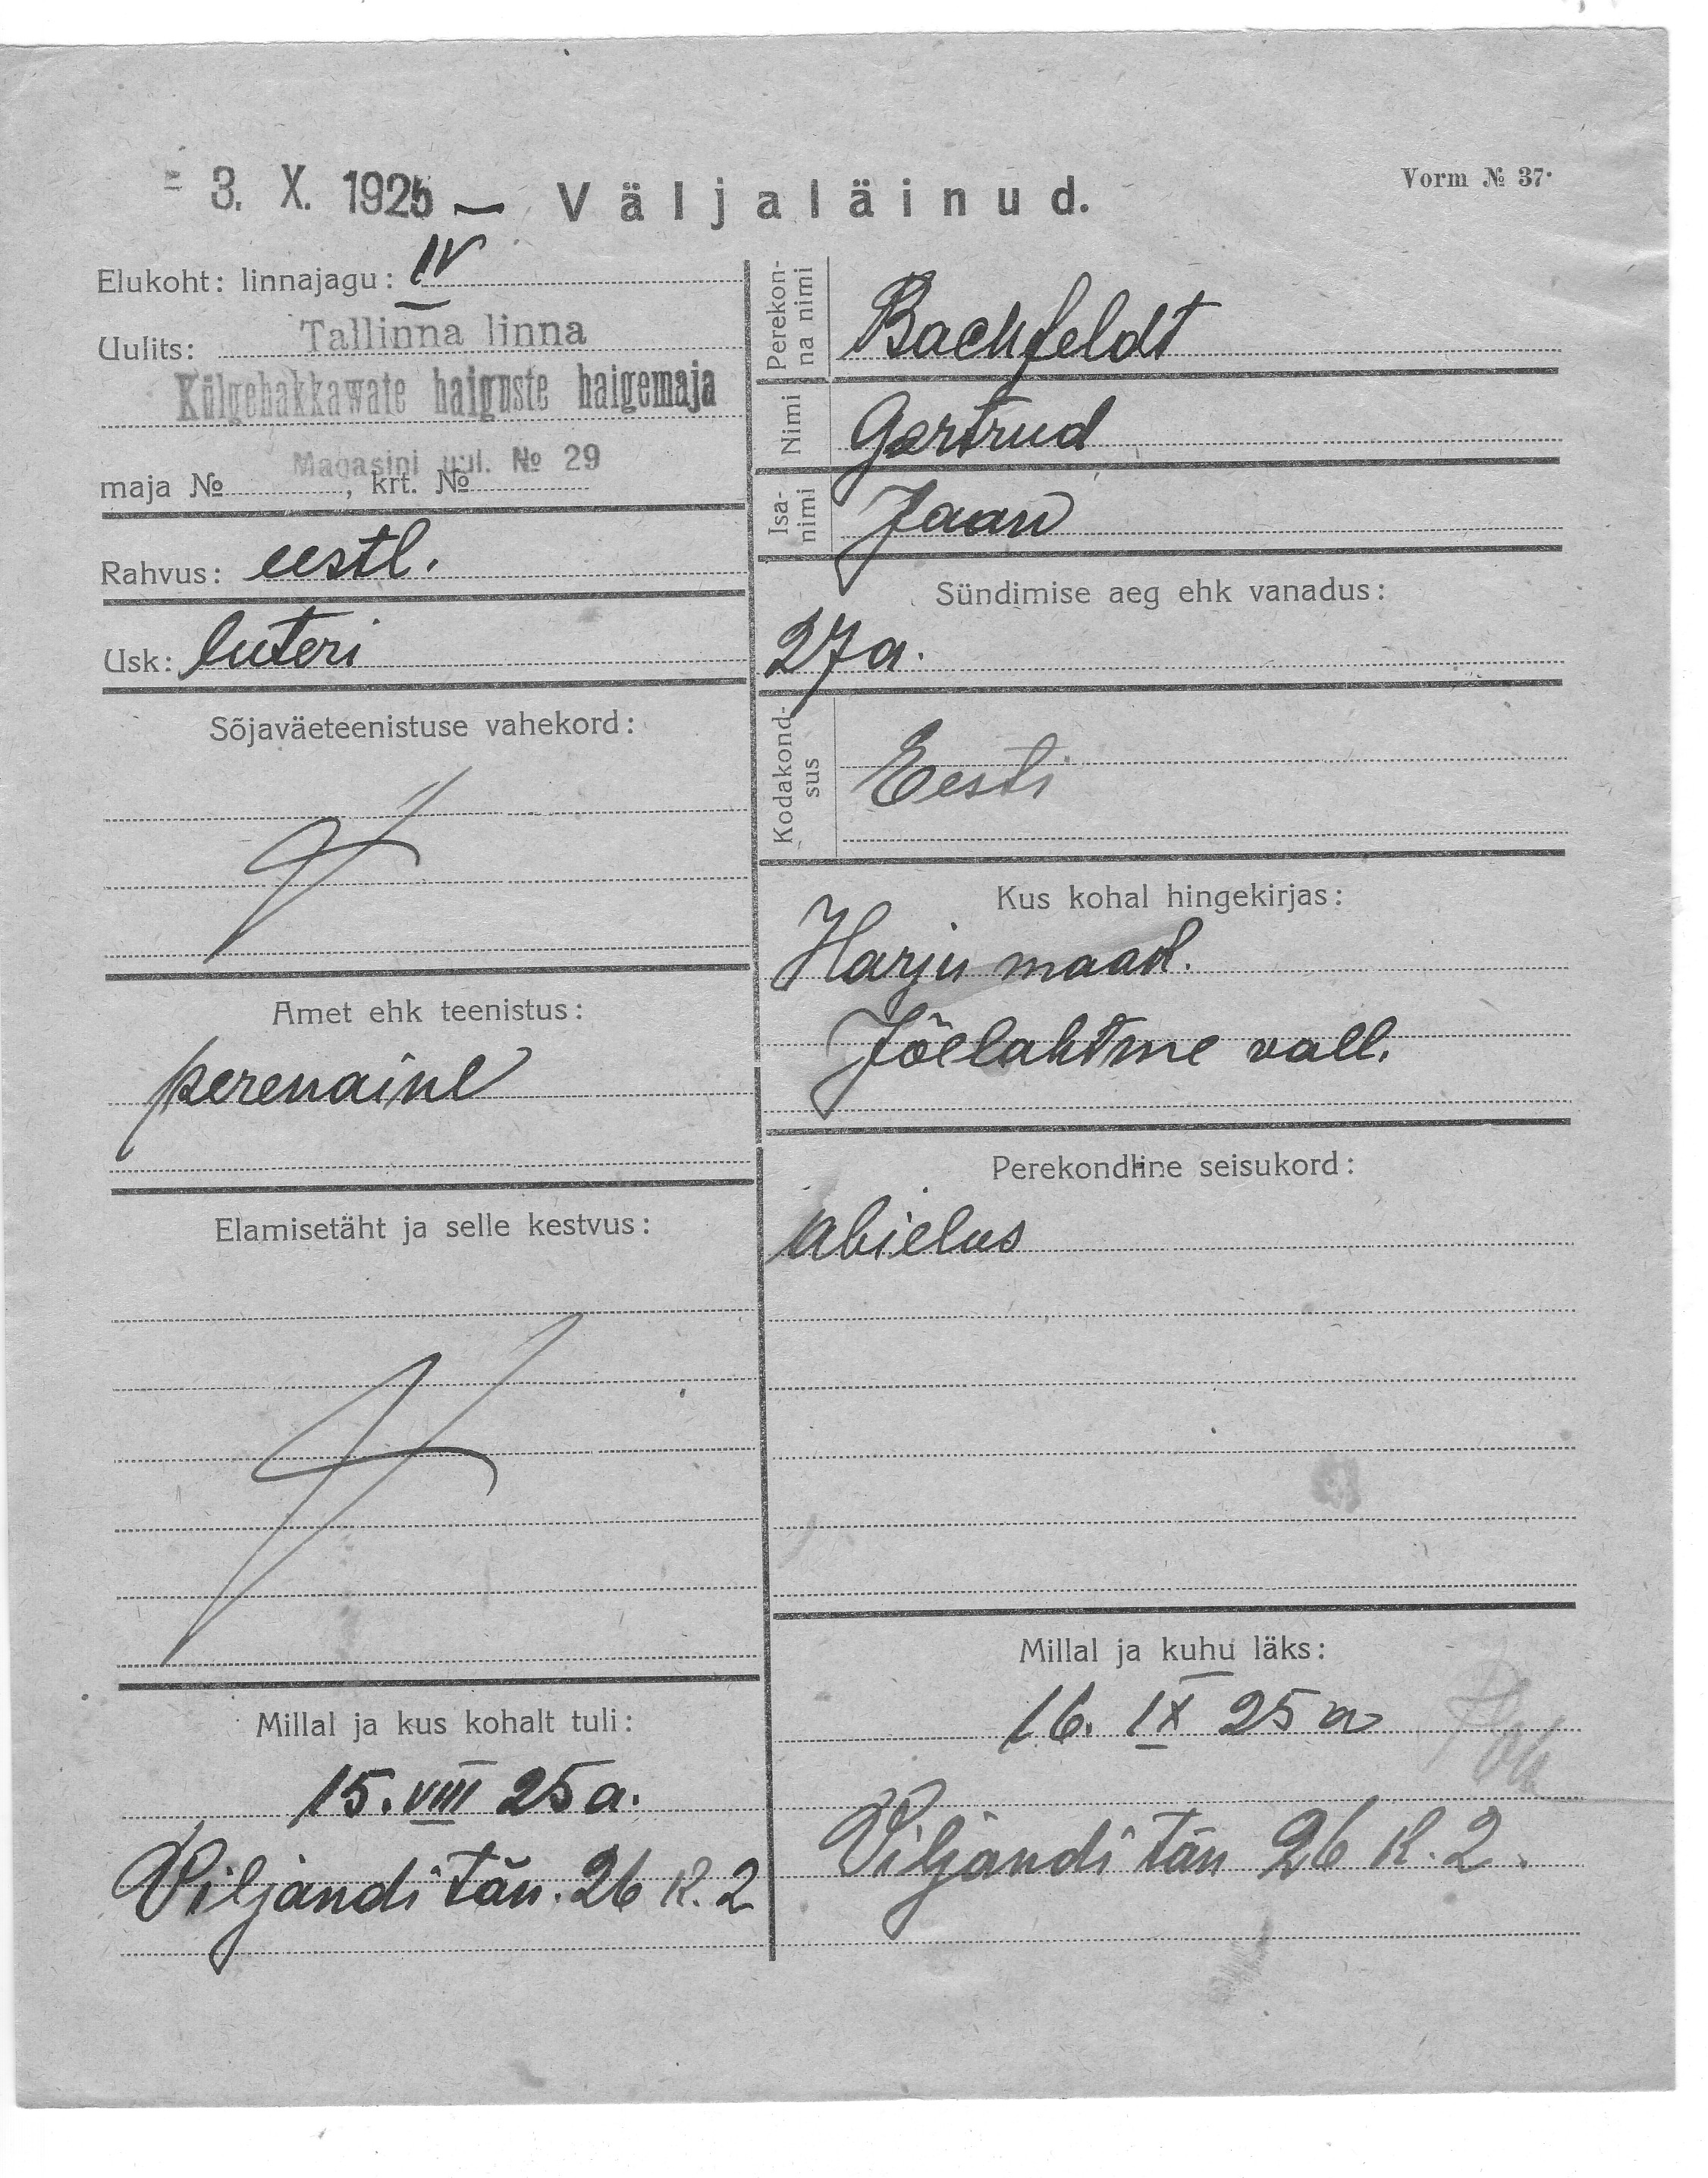 - 3. X. 1925 — Väljaläinud.
Vorm № 37.
Elukoht: linnajagu: IV
Uulits: Tallinna linna
Külgehakkawate haiguste haigemaja
Magasini uul. № 29
maja № , krt. №
Rahvus: eestl.
Usk: luteri
Sõjaväeteenistuse vahekord:
Amet ehk teenistus:
perenaine
Elamisetäht ja selle kestvus:
Millal ja kus kohalt tuli:
15. VIII 25 a.
Viljandi tän. 26 k. 2
Perekon-
na nimi Bachfeldt
Nimi Gertrud
Isa-
nimi Jaan
Sündimise aeg ehk vanadus:
27 a.
Kodakond-
sus Eesti
Kus kohal hingekirjas:
Harju maad.
Jõelahtme vall.
Perekondline seisukord:
abielus
Millal ja kuhu läks:
16. IX 25 a
Viljandi tän 26 k. 2.